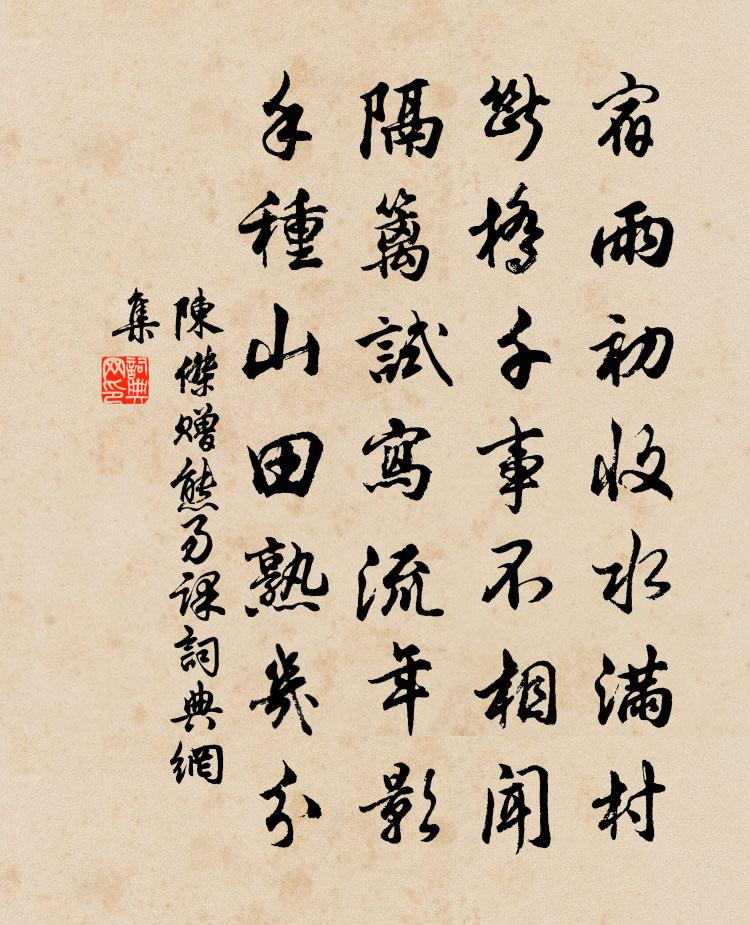 宿雨初收水滿村
斷橋千事不相聞
隔篱試寫流年影
手種山田熟幾分
陳傑贈熊易課詞典網
集
詞典
网印